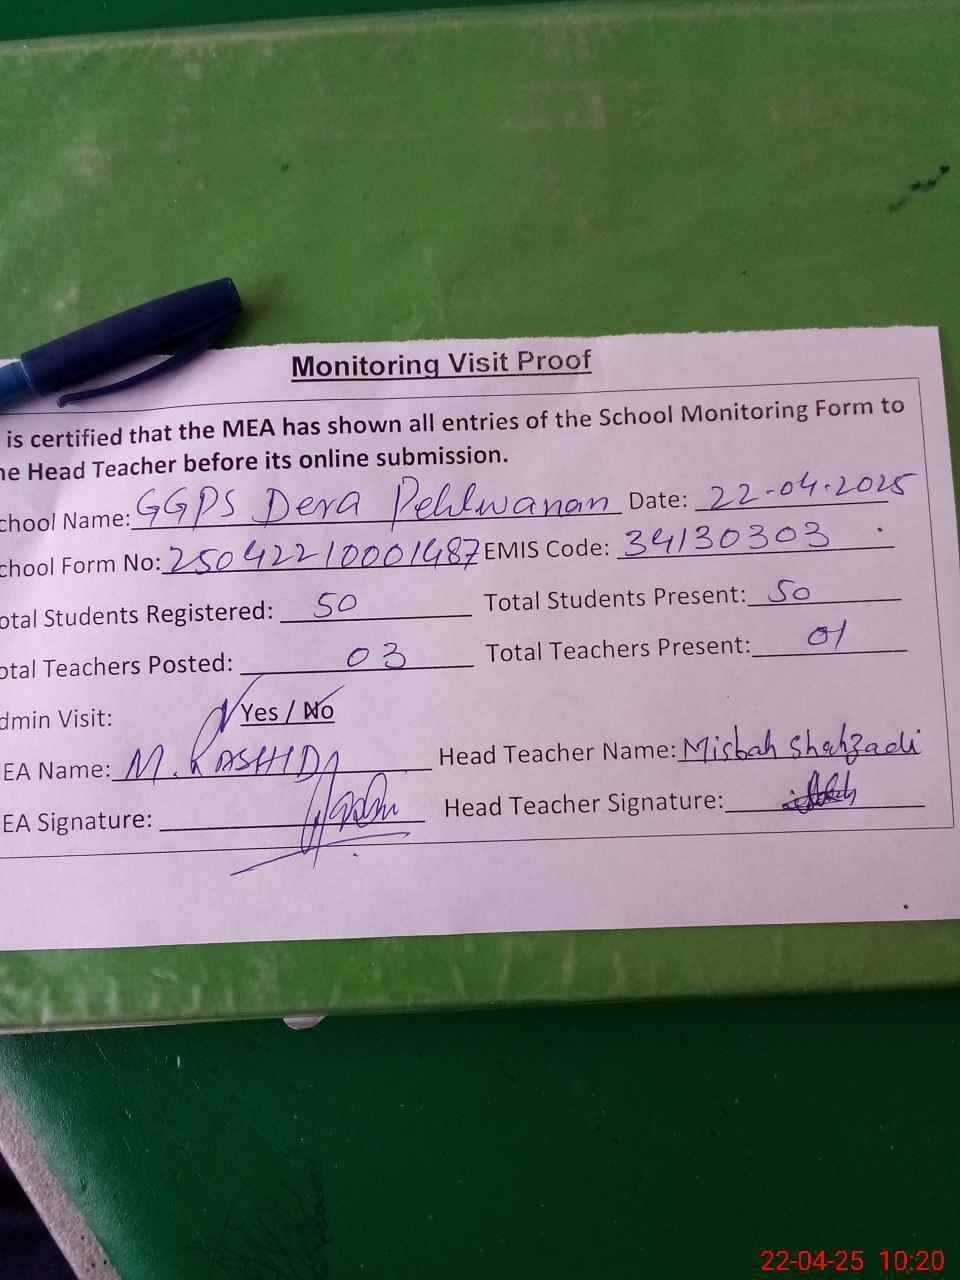 Monitoring Visit Proof
is certified that the MEA has shown all entries of the School Monitoring Form to
he Head Teacher before its online submission.
chool Name: GGPS Dera Pehlwanan Date: 22-04-2025
chool Form No: 25042210001487 EMIS Code: 34130303
otal Students Registered: 50 Total Students Present: 50
otal Teachers Posted: 03 Total Teachers Present: 01
dmin Visit: Yes / No
EA Name: M. RASHID Head Teacher Name: Misbah Shahzadi
EA Signature: Head Teacher Signature:
22-04-25 10:20